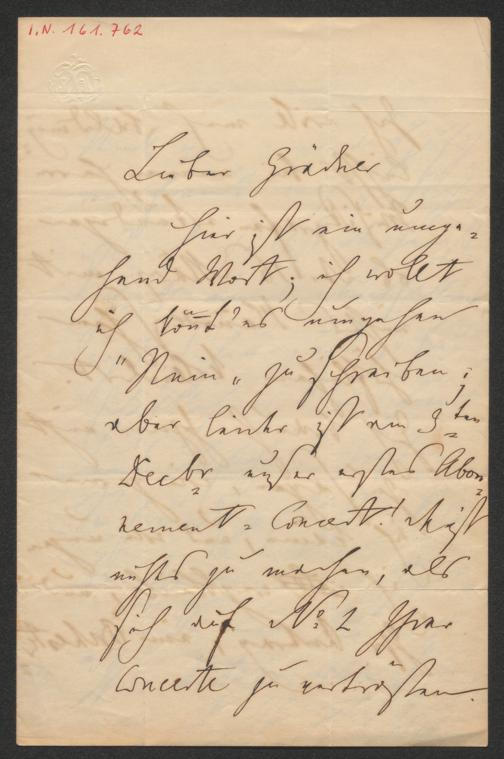 I.N. 161.762
Lieber Grädner
hier ist ein umge-
hend Wort; ich wollt
ich könnt's umgehen
"Nein" zu schreiben;
aber leider ist am 3ten
Decbr unser erstes Abon-
nement-Concert! Also ist
nichts zu machen, als
sich auf No 2 Ihrer
Concerte zu vertrösten.